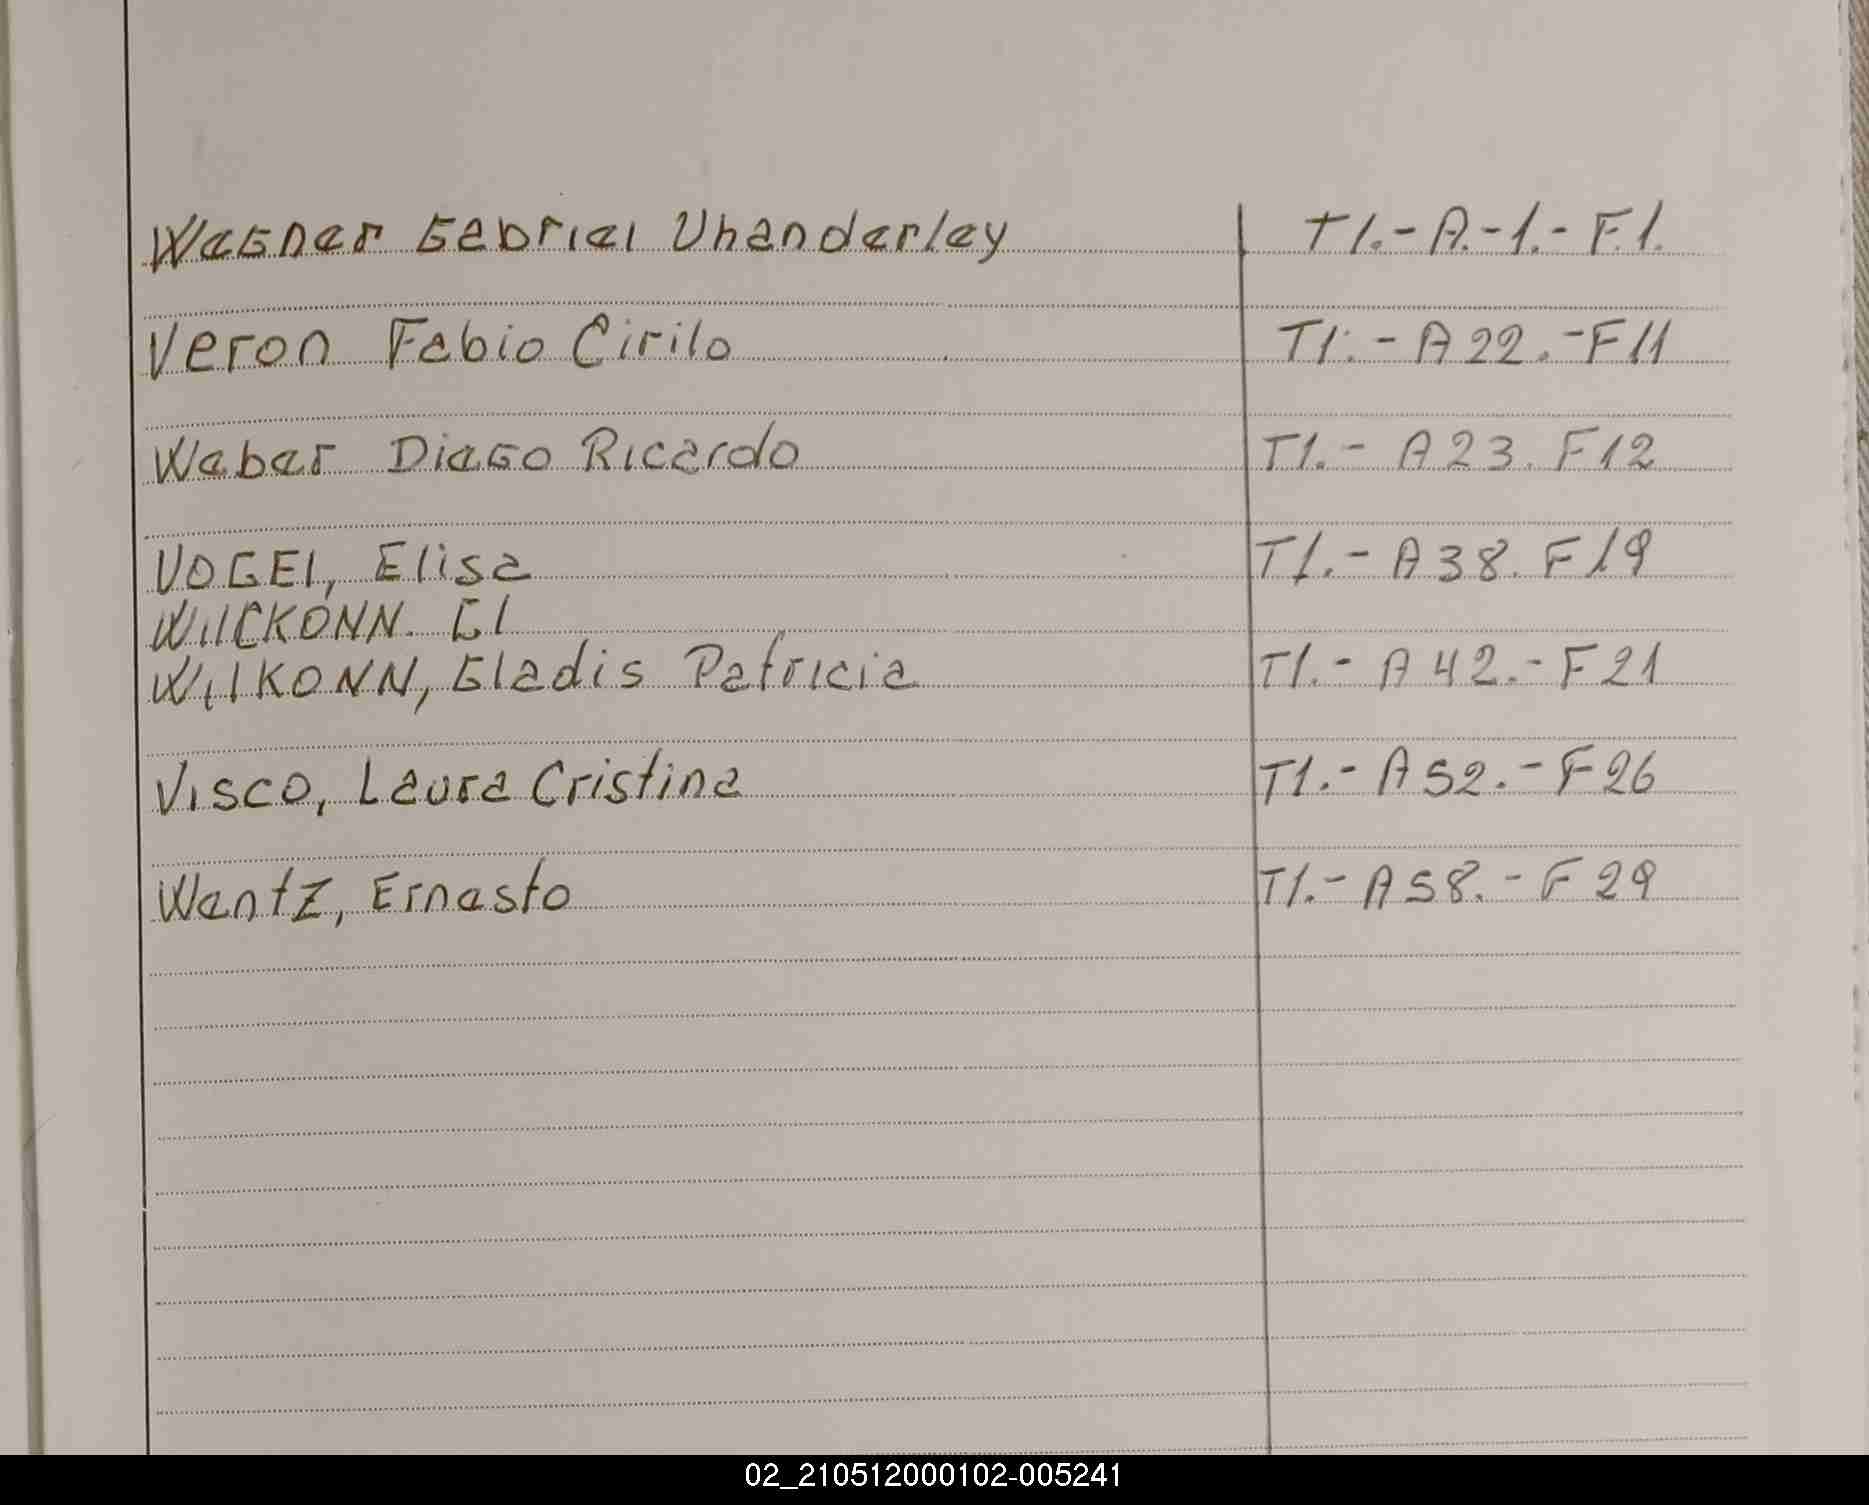 Wagner Gabriel Uhanderley T1.-A.-1.-F.1.
Veron Fabio Cirilo T1.-A22.-F11
Weber Diego Ricardo T1.-A23.F12
VOGEl, Elisa T1.-A38.F19
WilCKONN. Gl
WilKONN, Gladis Patricia T1.-A42.-F21
Visco, Laura Cristina T1.-A52.-F26
Wentz, Ernesto T1.-A58.-F29
02_210512000102-005241